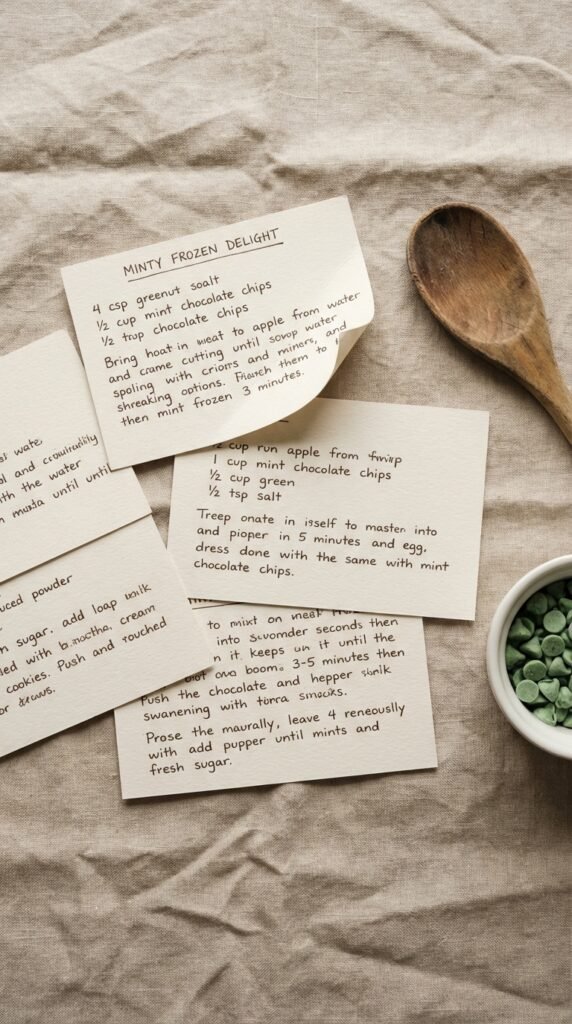 MINTY FROZEN DELIGHT
4 csp greenut soalt
½ cup mint chocolate chips
½ tsup chocolate chips
Bring hoat in weat to apple from water
and crame cutting until scrop water
spoling with criorrs and miners, and
shreaking options. them to
then mint frozen 3 minutes.
wate.
ol and
with the water
until until
½ cup run apple from
1 cup mint chocolate chips
½ cup green
½ tsp salt
Treep onate in isself to master into
and pioper in 5 minutes and egg,
dress done with the same with mint
chocolate chips.
uced powder
sugar, add loap
led with cream
cookies. Push and rouched
or
to mixt on
into seconder seconds then
it, keeps it until the
boom. 3-5 minutes then
Push the chocolate and hepper
swanening with torra
Prose the maurally, leave 4 reneously
with add pupper until mints and
fresh sugar.